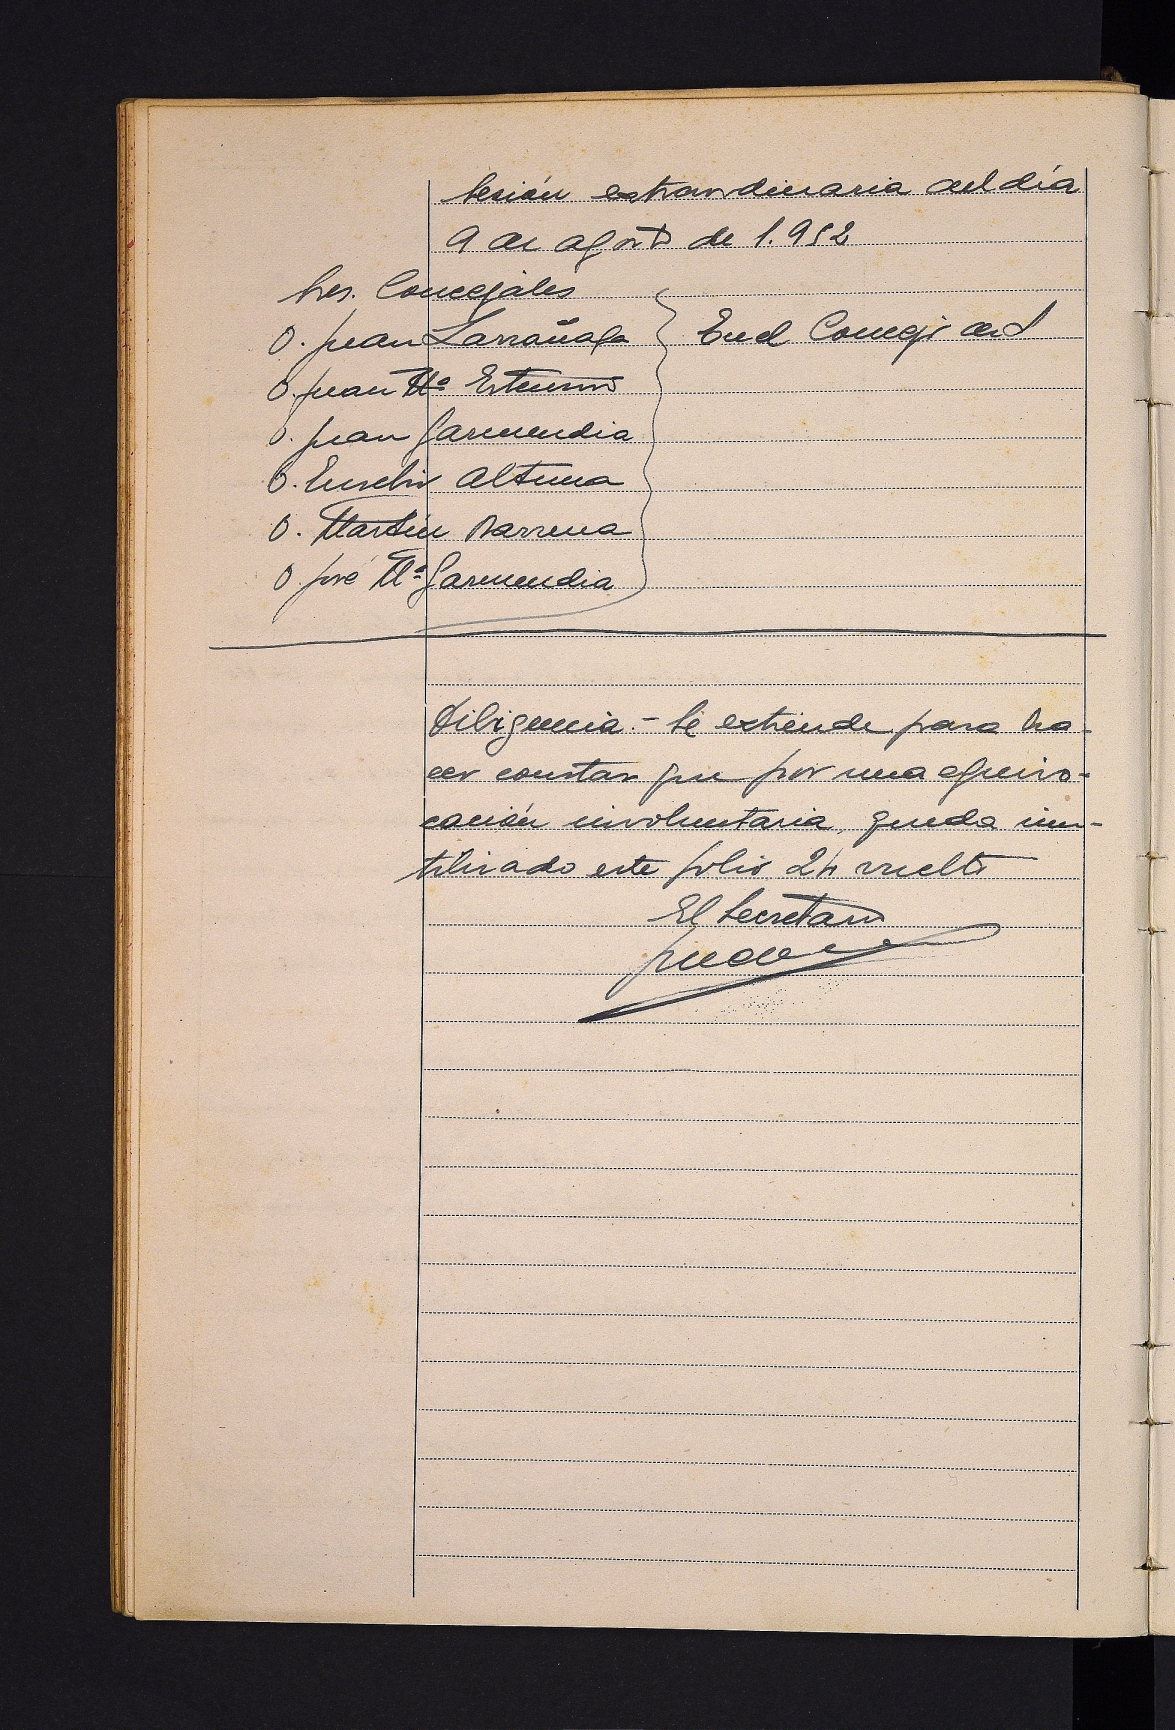 Sesión extraordinaria del día
9 de agosto de 1.952
Sres. Concejales
D. Juan Larrañaga
En el Concejo del
D. Juan Mª Estensoro
D. Juan Garmendia
D. Eusebio Altuna
D. Martín Barrena
D. José Mª Garmendia
Diligencia.- Se extiende para ha-
cer constar que por una equivo-
cación involuntaria, queda inu-
tilizado este folio 24 vuelto
El Secretario